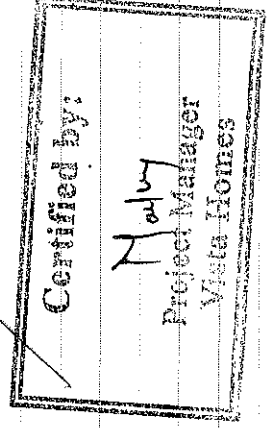 Certified by:
Project Manager
Vista Homes